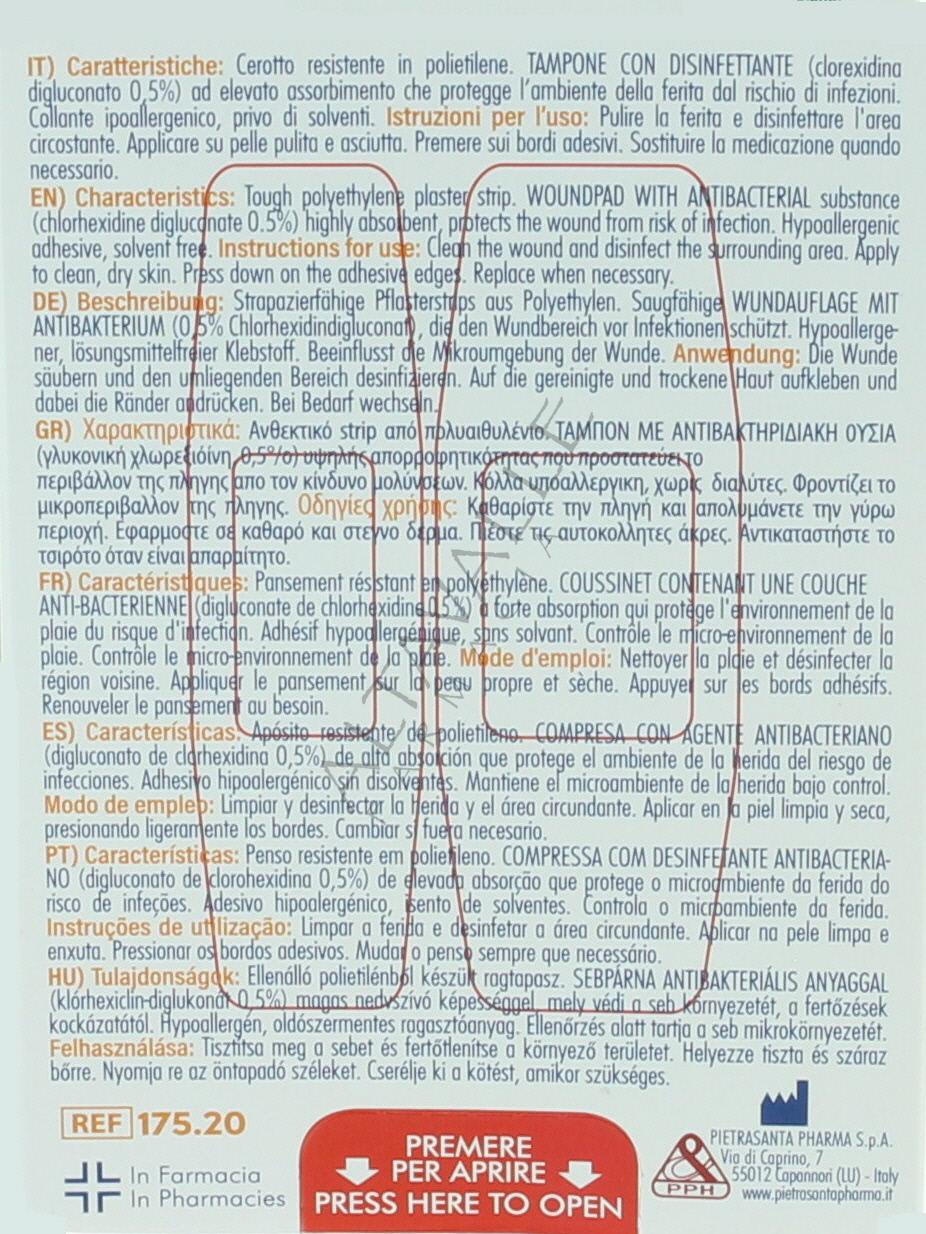 IT) Caratteristiche: Cerotto resistente in polietilene. TAMPONE CON DISINFETTANTE (clorexidina
digluconato 0,5%) ad elevato assorbimento che protegge l'ambiente della ferita dal rischio di infezioni.
Collante ipoallergenico, privo di solventi. Istruzioni per l'uso: Pulire la ferita e disinfettare l'area
circostante. Applicare su pelle pulita e asciutta. Premere sui bordi adesivi. Sostituire la medicazione quando
necessario.
EN) Characteristics: Tough polyethylene plaster strip. WOUNDPAD WITH ANTIBACTERIAL substance
(chlorhexidine digluconate 0.5%) highly absorbent, protects the wound from risk of infection. Hypoallergenic
adhesive, solvent free. Instructions for use: Clean the wound and disinfect the surrounding area. Apply
to clean, dry skin. Press down on the adhesive edges. Replace when necessary.
DE) Beschreibung: Strapazierfähige Pflasterstrips aus Polyethylen. Saugfähige WUNDAUFLAGE MIT
ANTIBAKTERIUM (0,5% Chlorhexidindigluconat), die den Wundbereich vor Infektionen schützt. Hypoallerge-
ner, lösungsmittelfreier Klebstoff. Beeinflusst die Mikroumgebung der Wunde. Anwendung: Die Wunde
säubern und den umliegenden Bereich desinfizieren. Auf die gereinigte und trockene Haut aufkleben und
dabei die Ränder andrücken. Bei Bedarf wechseln.
GR) Χαρακτηριστικά: Ανθεκτικό strip από πολυαιθυλένιο. ΤΑΜΠΟΝ ΜΕ ΑΝΤΙΒΑΚΤΗΡΙΔΙΑΚΗ ΟΥΣΙΑ
(γλυκονική χλωρεξιδίνη 0,5%) υψηλής απορροφητικότητας που προστατεύει το
περιβάλλον της πληγης απο τον κίνδυνο μολύνσεων. Κόλλα υποαλλεργικη, χωρίς διαλύτες. Φροντίζει το
μικροπεριβαλλον της πληγης. Οδηγίες χρήσης: Καθαρίστε την πληγή και απολυμάνετε την γύρω
περιοχή. Εφαρμοστε σε καθαρό και στεγνο δερμα. Πιέστε τις αυτοκολλητες άκρες. Αντικαταστήστε το
τσιρότο όταν είναι απαραίτητο.
FR) Caractéristiques: Pansement résistant en polyéthylène. COUSSINET CONTENANT UNE COUCHE
ANTI-BACTERIENNE (digluconate de chlorhexidine 0,5%) à forte absorption qui protège l'environnement de la
plaie du risque d'infection. Adhésif hypoallergénique, sans solvant. Contrôle le micro-environnement de la
plaie. Contrôle le micro-environnement de la plaie. Mode d'emploi: Nettoyer la plaie et désinfecter la
région voisine. Appliquer le pansement sur la peau propre et sèche. Appuyer sur les bords adhésifs.
Renouveler le pansement au besoin.
ES) Características: Apósito resistente de polietileno. COMPRESA CON AGENTE ANTIBACTERIANO
(digluconato de clorhexidina 0,5%) de alta absorción que protege el ambiente de la herida del riesgo de
infecciones. Adhesivo hipoalergénico sin disolventes. Mantiene el microambiente de la herida bajo control.
Modo de empleo: Limpiar y desinfectar la herida y el área circundante. Aplicar en la piel limpia y seca,
presionando ligeramente los bordes. Cambiar si fuera necesario.
PT) Características: Penso resistente em polietileno. COMPRESSA COM DESINFETANTE ANTIBACTERIA-
NO (digluconato de clorohexidina 0,5%) de elevada absorção que protege o microambiente da ferida do
risco de infeções. Adesivo hipoalergénico, isento de solventes. Controla o microambiente da ferida.
Instruções de utilização: Limpar a ferida e desinfetar a área circundante. Aplicar na pele limpa e
enxuta. Pressionar os bordos adesivos. Mudar o penso sempre que necessário.
HU) Tulajdonságok: Ellenálló polietilénből készült ragtapasz. SEBPÁRNA ANTIBAKTERIÁLIS ANYAGGAL
(klórhexiclin-diglukonát 0,5%) magas nedvszívó képességgel, mely védi a seb környezetét, a fertőzések
kockázatától. Hypoallergén, oldószermentes ragasztóanyag. Ellenőrzés alatt tartja a seb mikrokörnyezetét.
Felhasználása: Tisztítsa meg a sebet és fertőtlenítse a környező területet. Helyezze tiszta és száraz
bőrre. Nyomja re az öntapadó széleket. Cserélje ki a kötést, amikor szükséges.
REF 175.20
In Farmacia
In Pharmacies
PREMERE
PER APRIRE
PRESS HERE TO OPEN
PPH
PIETRASANTA PHARMA S.p.A.
Via di Caprino, 7
55012 Capannori (LU) - Italy
www.pietrasantapharma.it
ALTAVALLE